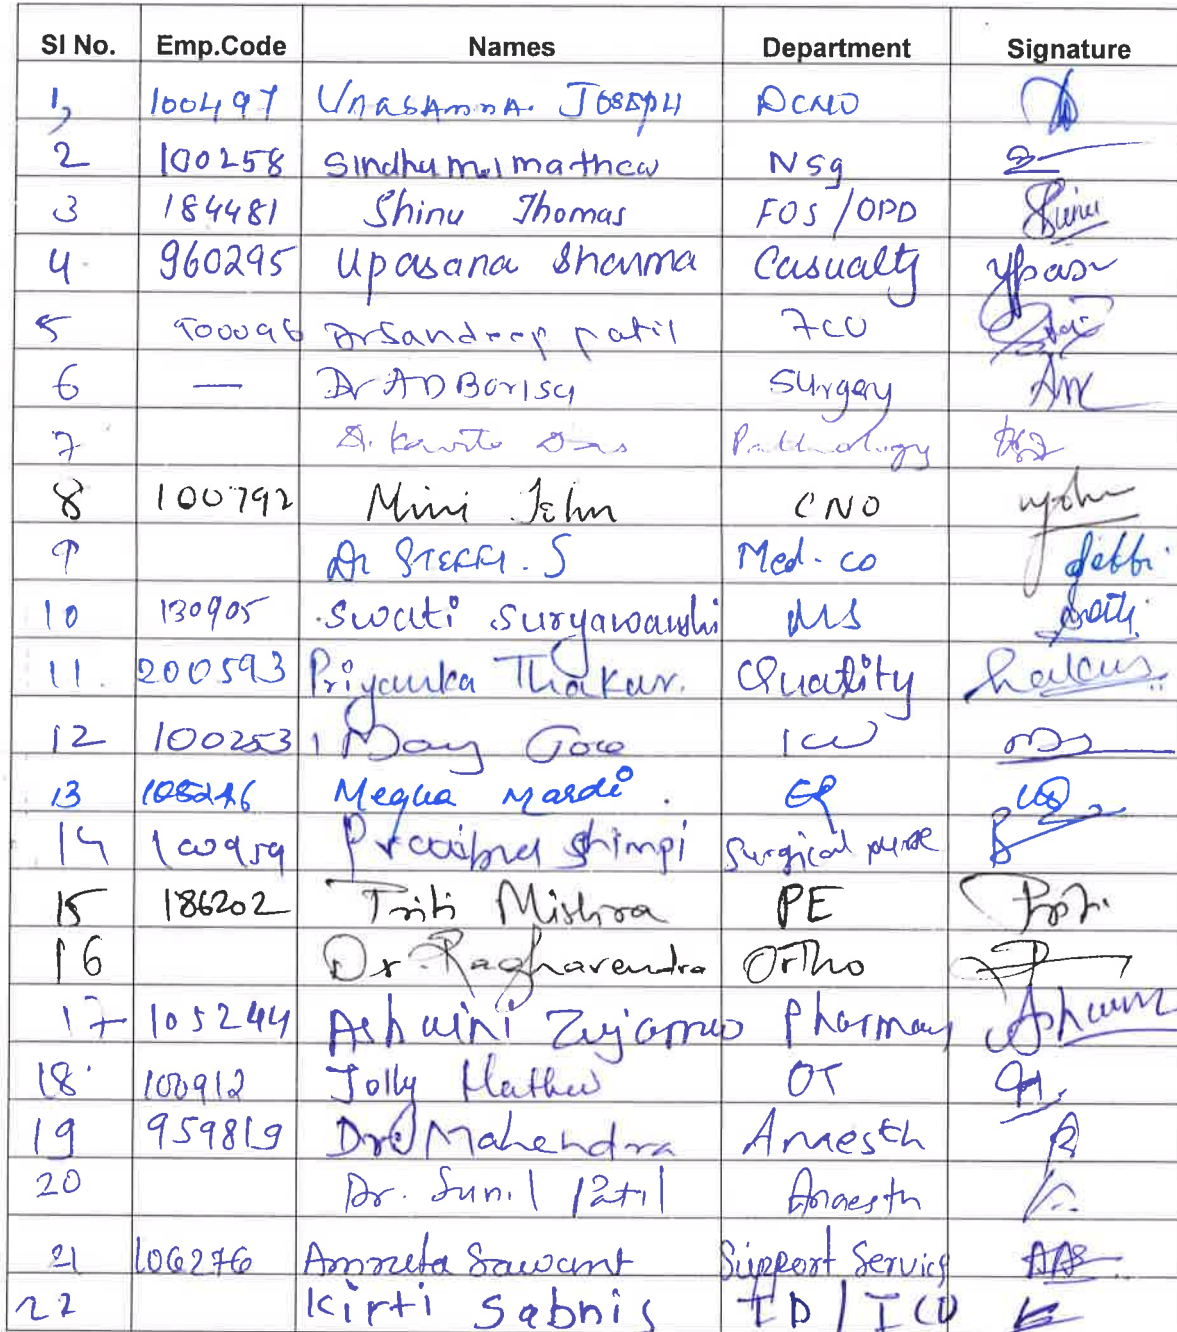 Sl No. Emp.Code Names Department Signature
1, 100497 UnasAmmA. JosEpH DCNO
2 100258 Sindhumol mathew Nsg
3 184481 Shinu Thomas FOS/OPD Shinu
4. 960295 Upasana Sharma Casualty Upasr
5 900096 Dr Sandeep patil ICU
6 — Dr AD Borisq Surgery
7 Dr. Kavita Das Pathology
8 100792 Mini John CNO
9 Dr STEFFI. S Med-co
10 130905 Swati Suryawanshi MS Swati
11. 200593 Priyanka Thakur. Quality
12 100253 ICU
13 Megha Mardi. ER
14 100959 Shimpi Surgical nurse
15 186202 Priti Mishra PE Priti
16 Dr. Raghavendra Ortho
17 105244 Ashwini Pharmacy Ashwini
18. 100912 Jolly Mathew OT
19 959819 Dr Mahendra Anaesth
20 Dr. Sunil Patil Anaesth
21 106276 Amruta Sawant Support Services
22 Kirti Sabnis ID/ICU